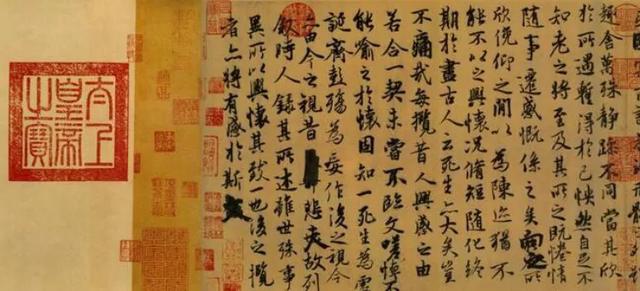 趣舍萬殊靜躁不同當其欣
於所遇蹔得於己怏然自足不
知老之將至及其所之既惓情
隨事遷感慨係之矣向之所
欣俛仰之間以為陳迹猶不
能不以之興懷況脩短隨化終
期於盡古人云死生亦大矣豈
不痛哉每攬昔人興感之由
若合一契未嘗不臨文嗟悼不
能喻之於懷固知一死生為虛
誕齊彭殤為妄作後之視今
亦由今之視昔悲夫故列
敘時人錄其所述雖世殊事
異所以興懷其致一也後之攬
者亦將有感於斯文
太上
皇帝
之寶